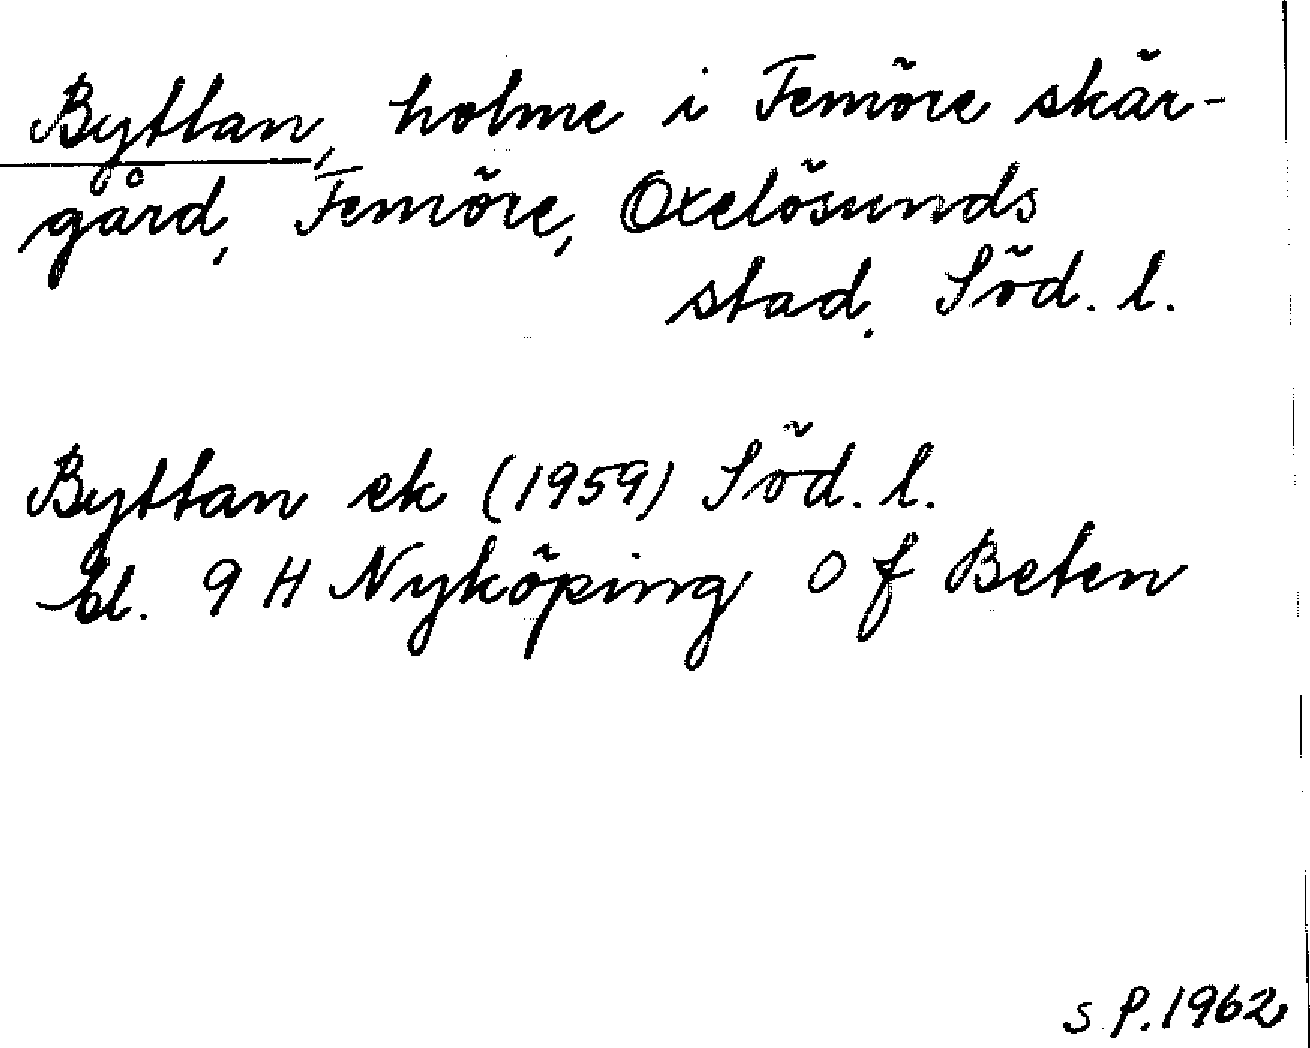 Byttan, holme i Femöre skär-
gård, Femöre, Oxelösunds
stad. Söd. l.
Byttan ek (1959) Söd. l.
bl. 9 H Nyköping O f Beten
S P. 1962